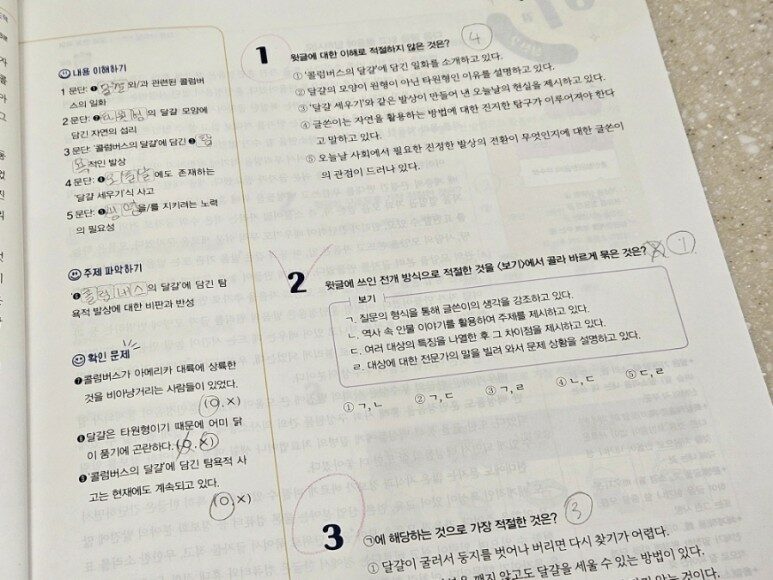 내용 이해하기
1 문단: ❶달걀와/과 관련된 콜럼버
스의 일화
2 문단: ❷타원형의 달걀 모양에
담긴 자연의 섭리
3 문단: '콜럼버스의 달걀'에 담긴 ❸탐
욕적인 발상
4 문단: ❹오늘날에도 존재하는
'달걀 세우기'식 사고
5 문단: ❺생명을/를 지키려는 노력
의 필요성
주제 파악하기
❻콜럼버스의 달걀'에 담긴 탐
욕적 발상에 대한 비판과 반성
확인 문제
❼콜럼버스가 아메리카 대륙에 상륙한
것을 비아냥거리는 사람들이 있었다.
(O, X)
❽달걀은 타원형이기 때문에 어미 닭
이 품기에 곤란하다. (O, X)
❾'콜럼버스의 달걀'에 담긴 탐욕적 사
고는 현재에도 계속되고 있다.
(O, X)
1 윗글에 대한 이해로 적절하지 않은 것은? 4
① '콜럼버스의 달걀'에 담긴 일화를 소개하고 있다.
② 달걀의 모양이 원형이 아닌 타원형인 이유를 설명하고 있다.
③ '달걀 세우기'와 같은 발상이 만들어 낸 오늘날의 현실을 제시하고 있다.
④ 글쓴이는 자연을 활용하는 방법에 대한 진지한 탐구가 이루어져야 한다
고 말하고 있다.
⑤ 오늘날 사회에서 필요한 진정한 발상의 전환이 무엇인지에 대한 글쓴이
의 관점이 드러나 있다.
2 윗글에 쓰인 전개 방식으로 적절한 것을 <보기>에서 골라 바르게 묶은 것은? 1
보기
ㄱ. 질문의 형식을 통해 글쓴이의 생각을 강조하고 있다.
ㄴ. 역사 속 인물 이야기를 활용하여 주제를 제시하고 있다.
ㄷ. 여러 대상의 특징을 나열한 후 그 차이점을 제시하고 있다.
ㄹ. 대상에 대한 전문가의 말을 빌려 와서 문제 상황을 설명하고 있다.
① ㄱ, ㄴ ② ㄱ, ㄷ ③ ㄱ, ㄹ ④ ㄴ, ㄷ ⑤ ㄷ, ㄹ
3 ㉠에 해당하는 것으로 가장 적절한 것은? 3
① 달걀이 굴러서 둥지를 벗어나 버리면 다시 찾기가 어렵다.
깨지 않고도 달걀을 세울 수 있는 방법이 있다.